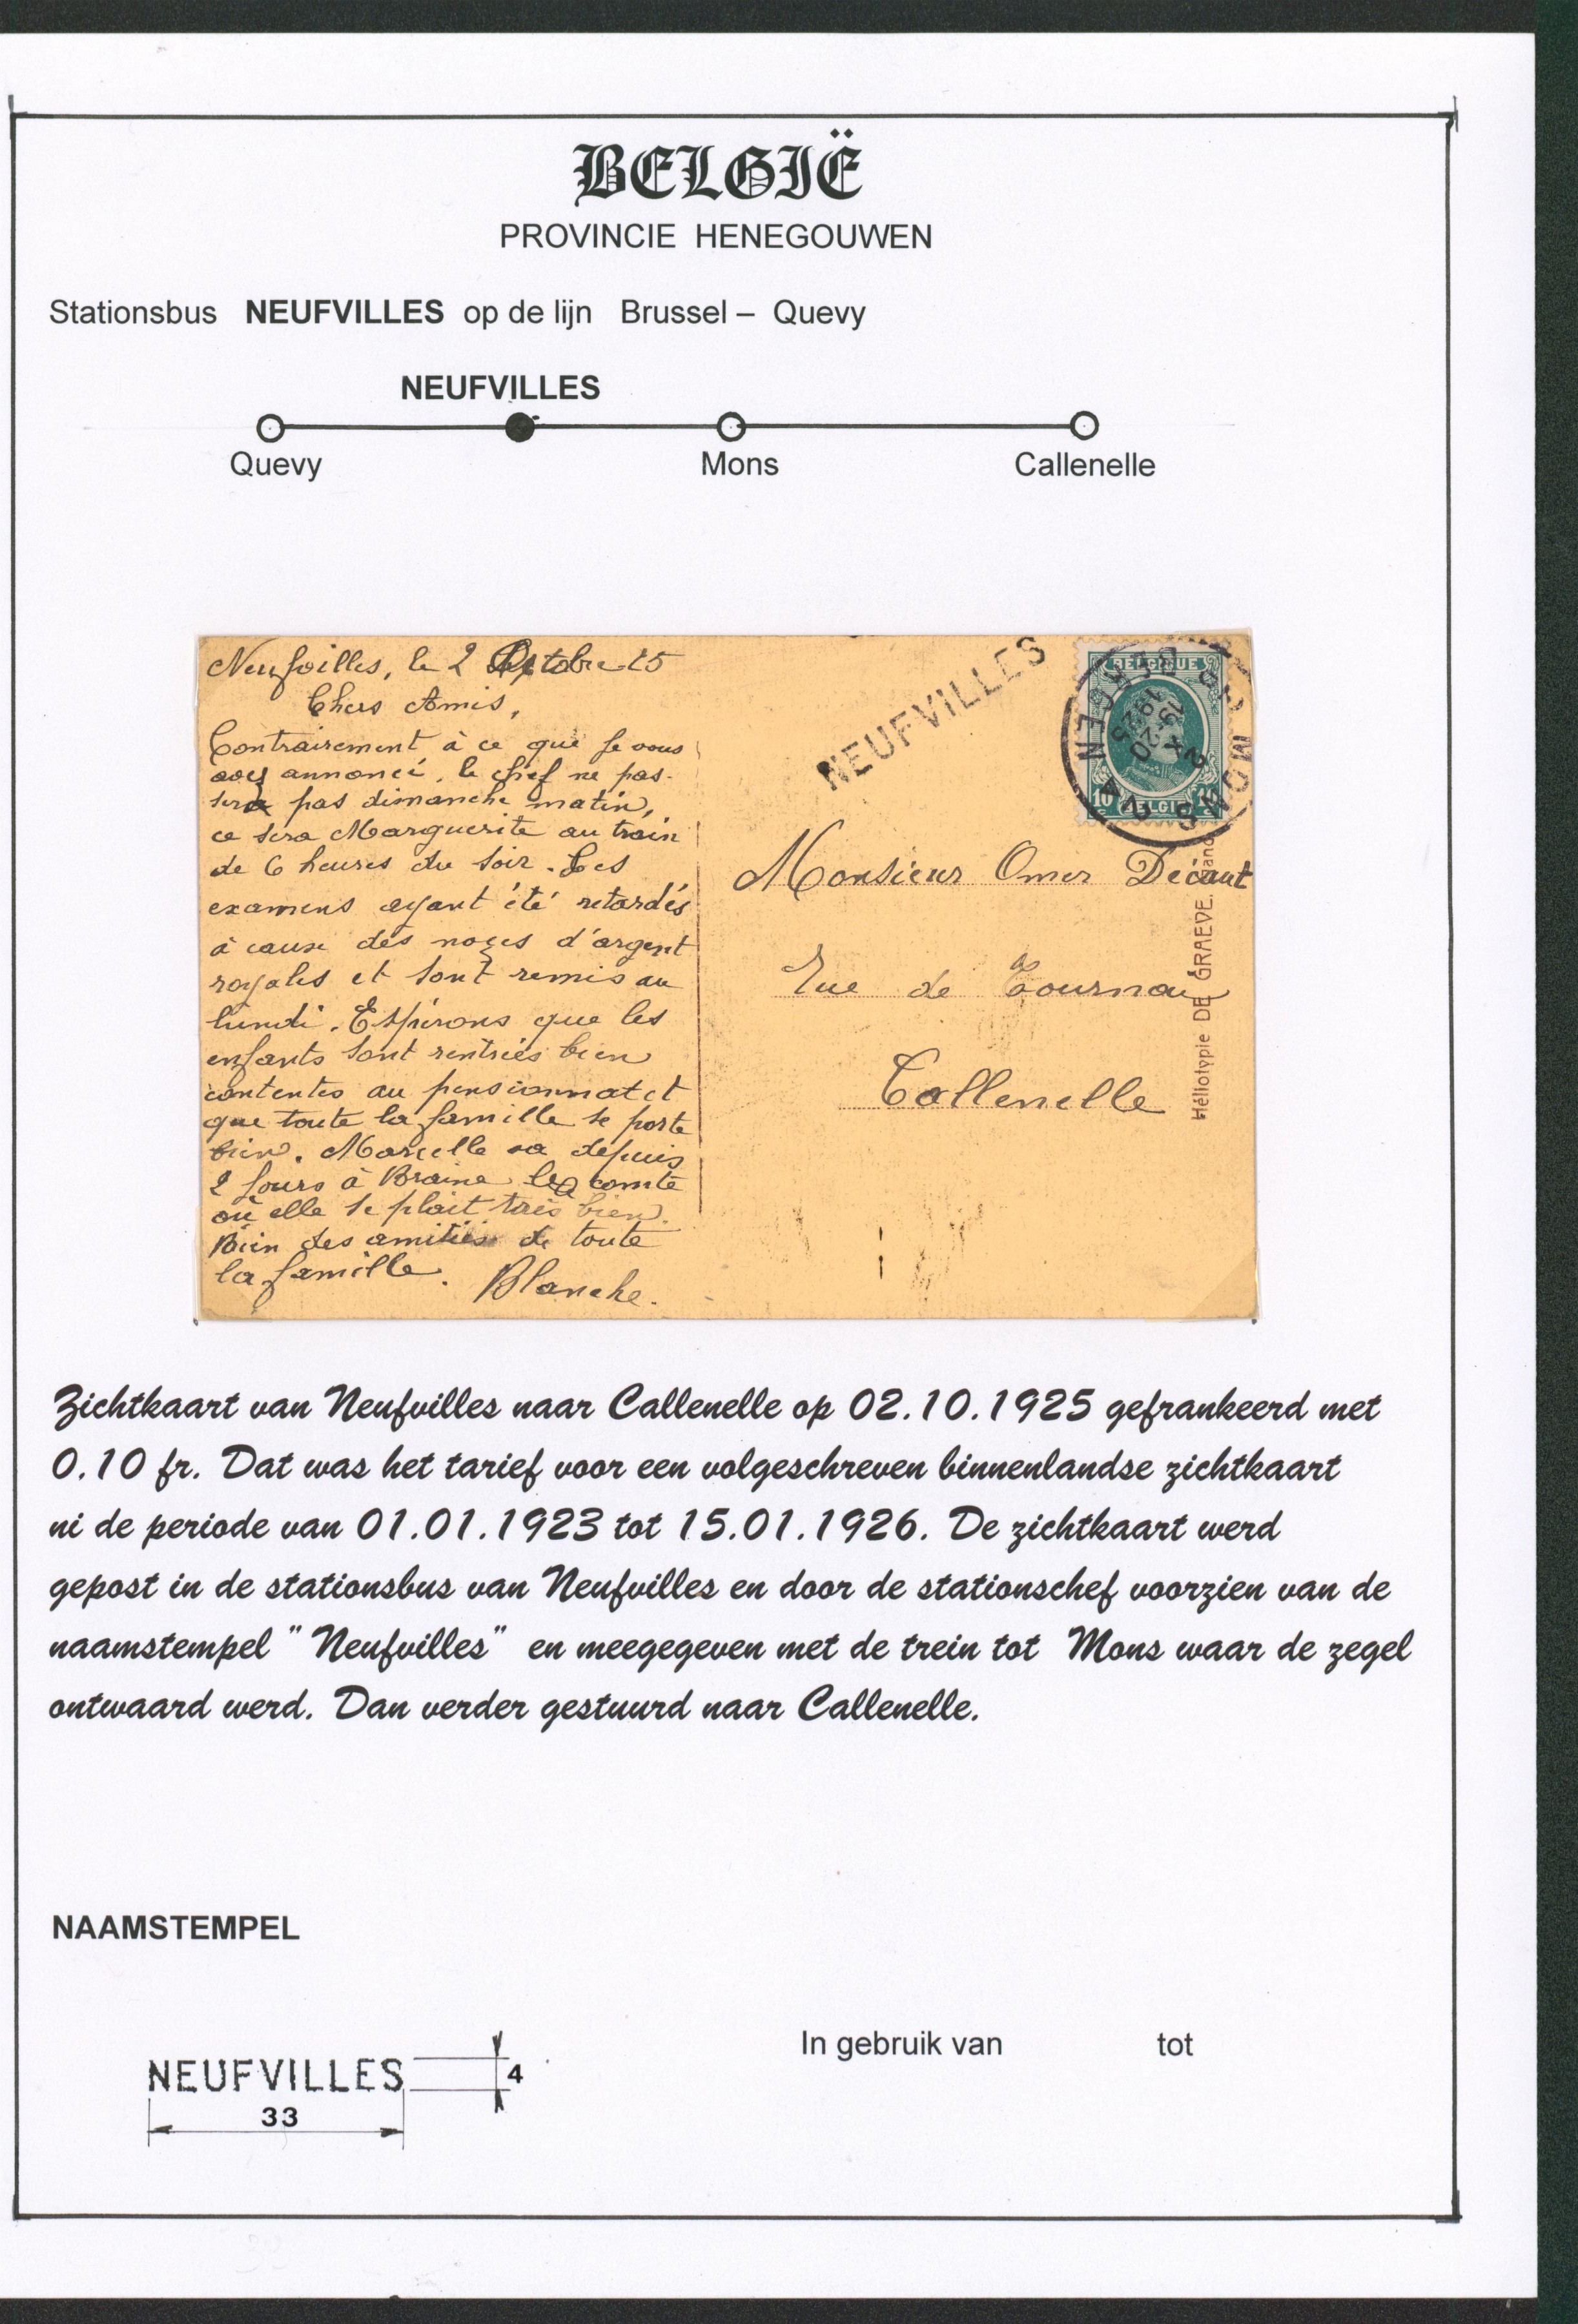 BELGIË
PROVINCIE HENEGOUWEN
Stationsbus NEUFVILLES op de lijn Brussel – Quevy
NEUFVILLES
Quevy Mons Callenelle
Neufvilles, le 2 Octobre 25
Chers Amis,
Contrairement à ce que je vous
avez annoncé, le chef ne pas-
sera pas dimanche matin,
ce sera Marguerite au train
de 6 heures du soir. Les
examens ayant été retardés
à cause des noces d'argent
royales et sont remis au
lundi. Espérons que les
enfants sont rentrées bien
contentes au pensionnat et
que toute la famille se porte
bien. Marcelle va depuis
2 jours à Braine le comte
où elle se plait très bien.
Bien des amitiés de toute
la famille. Blanche.
NEUFVILLES
BELGIQUE
10 BELGIË 10
MONS
BERGEN
2 X
19-20
1925
Monsieur Omer Decaut
Rue de Tournai
Callenelle
Héliotypie DE GRAEVE, Gand
Zichtkaart van Neufvilles naar Callenelle op 02.10.1925 gefrankeerd met
0.10 fr. Dat was het tarief voor een volgeschreven binnenlandse zichtkaart
ni de periode van 01.01.1923 tot 15.01.1926. De zichtkaart werd
gepost in de stationsbus van Neufvilles en door de stationschef voorzien van de
naamstempel " Neufvilles" en meegegeven met de trein tot Mons waar de zegel
ontwaard werd. Dan verder gestuurd naar Callenelle.
NAAMSTEMPEL
In gebruik van tot
NEUFVILLES
4
33